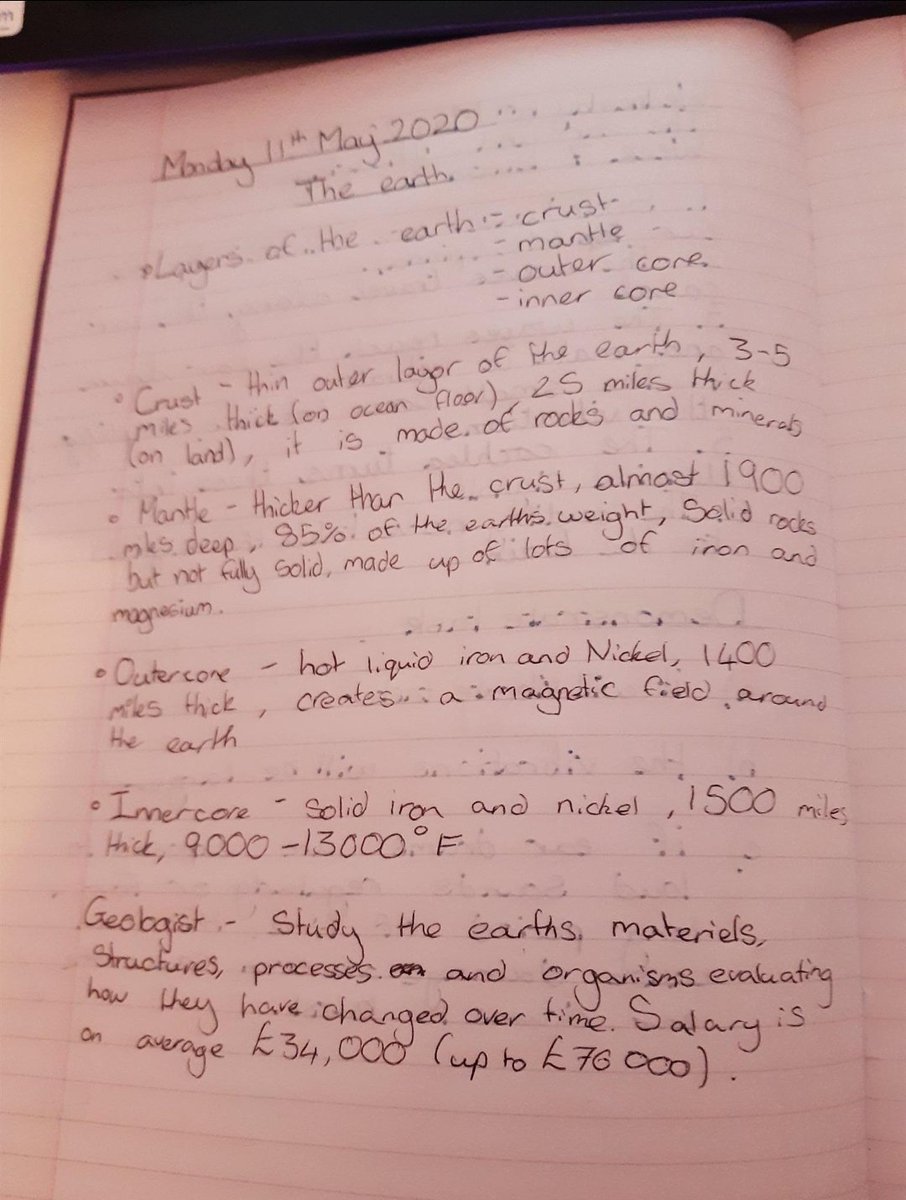 Monday 11th May 2020
The earth.
• Layers of the earth :- crust
- mantle
- outer core
- inner core
• Crust - thin outer layer of the earth, 3-5
miles thick (on ocean floor), 25 miles thick
(on land), it is made of rocks and minerals
• Mantle - thicker than the crust, almost 1900
miles deep, 85% of the earths weight, Solid rocks
but not fully solid, made up of lots of iron and
magnesium.
• Outercore - hot liquid iron and Nickel, 1400
miles thick, creates a magnetic field around
the earth
• Innercore - Solid iron and nickel, 1500 miles
thick, 9000 - 13000°F
Geologist - Study the earths materiels,
structures, processes and organisms evaluating
how they have changed over time. Salary is
on average £34,000 (up to £76 000).